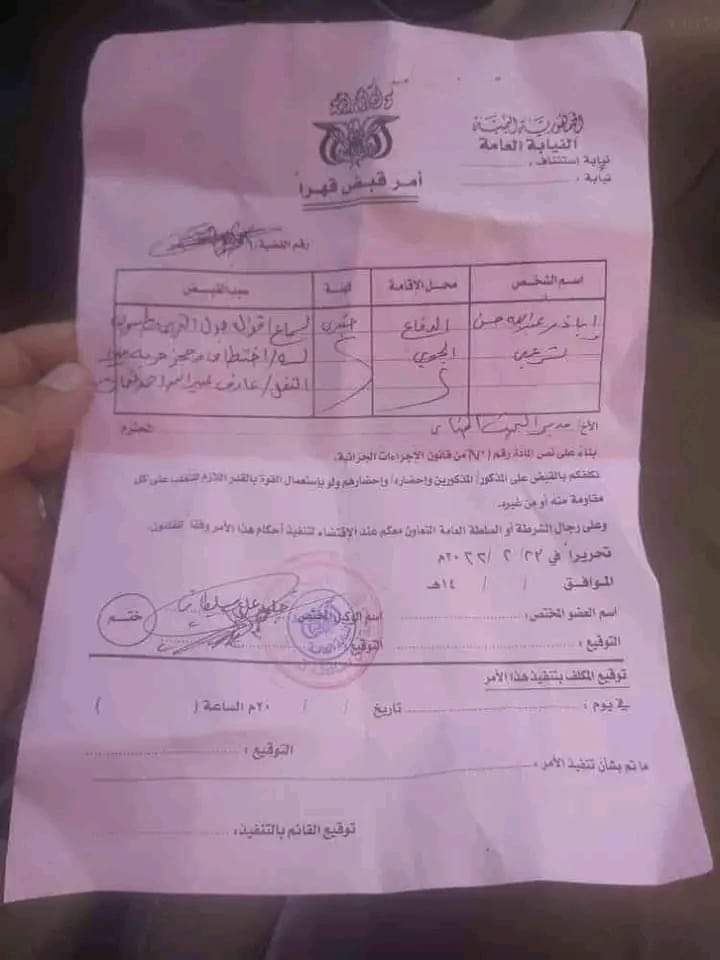 الجمهورية اليمنية
النيابة العامة
نيابة استئناف :
نيابة :
أمر قبض قهراً
رقم القضية :
اسم الشخص
محل الإقامة
المهنة
سبب القبض
اباذر عبدالله حسن
الدفاع
جندي
لسماع اقواله حول التهمة المنسوبة
شرعبي
الجوي
له / اختطاف وحجز حرية
عارف عبد
الأخ / مدير البحث الجنائي
المحترم
بناءً على نص المادة رقم ( ٧٠) من قانون الإجراءات الجزائية.
نكلفكم بالقبض على المذكور/ المذكورين وإحضاره/ وإحضارهم ولو بإستعمال القوة بالقدر اللازم للتغلب على كل
مقاومة منه أو من غيره.
وعلى رجال الشرطة أو السلطة العامة التعاون معكم عند الإقتضاء لتنفيذ أحكام هذا الأمر وفقاً للقانون.
تحريراً في ٢٣/ ٢ /٢٠٢٢م
الموافق / / ١٤هـ
اسم العضو المختص :
اسم الوكيل المختص :
ختم
التوقيع :
التوقيع :
توقيع المكلف بتنفيذ هذا الأمر
في يوم : تاريخ / / ٢٠م الساعة ( )
التوقيع :
ما تم بشأن تنفيذ الأمر :
توقيع القائم بالتنفيذ: